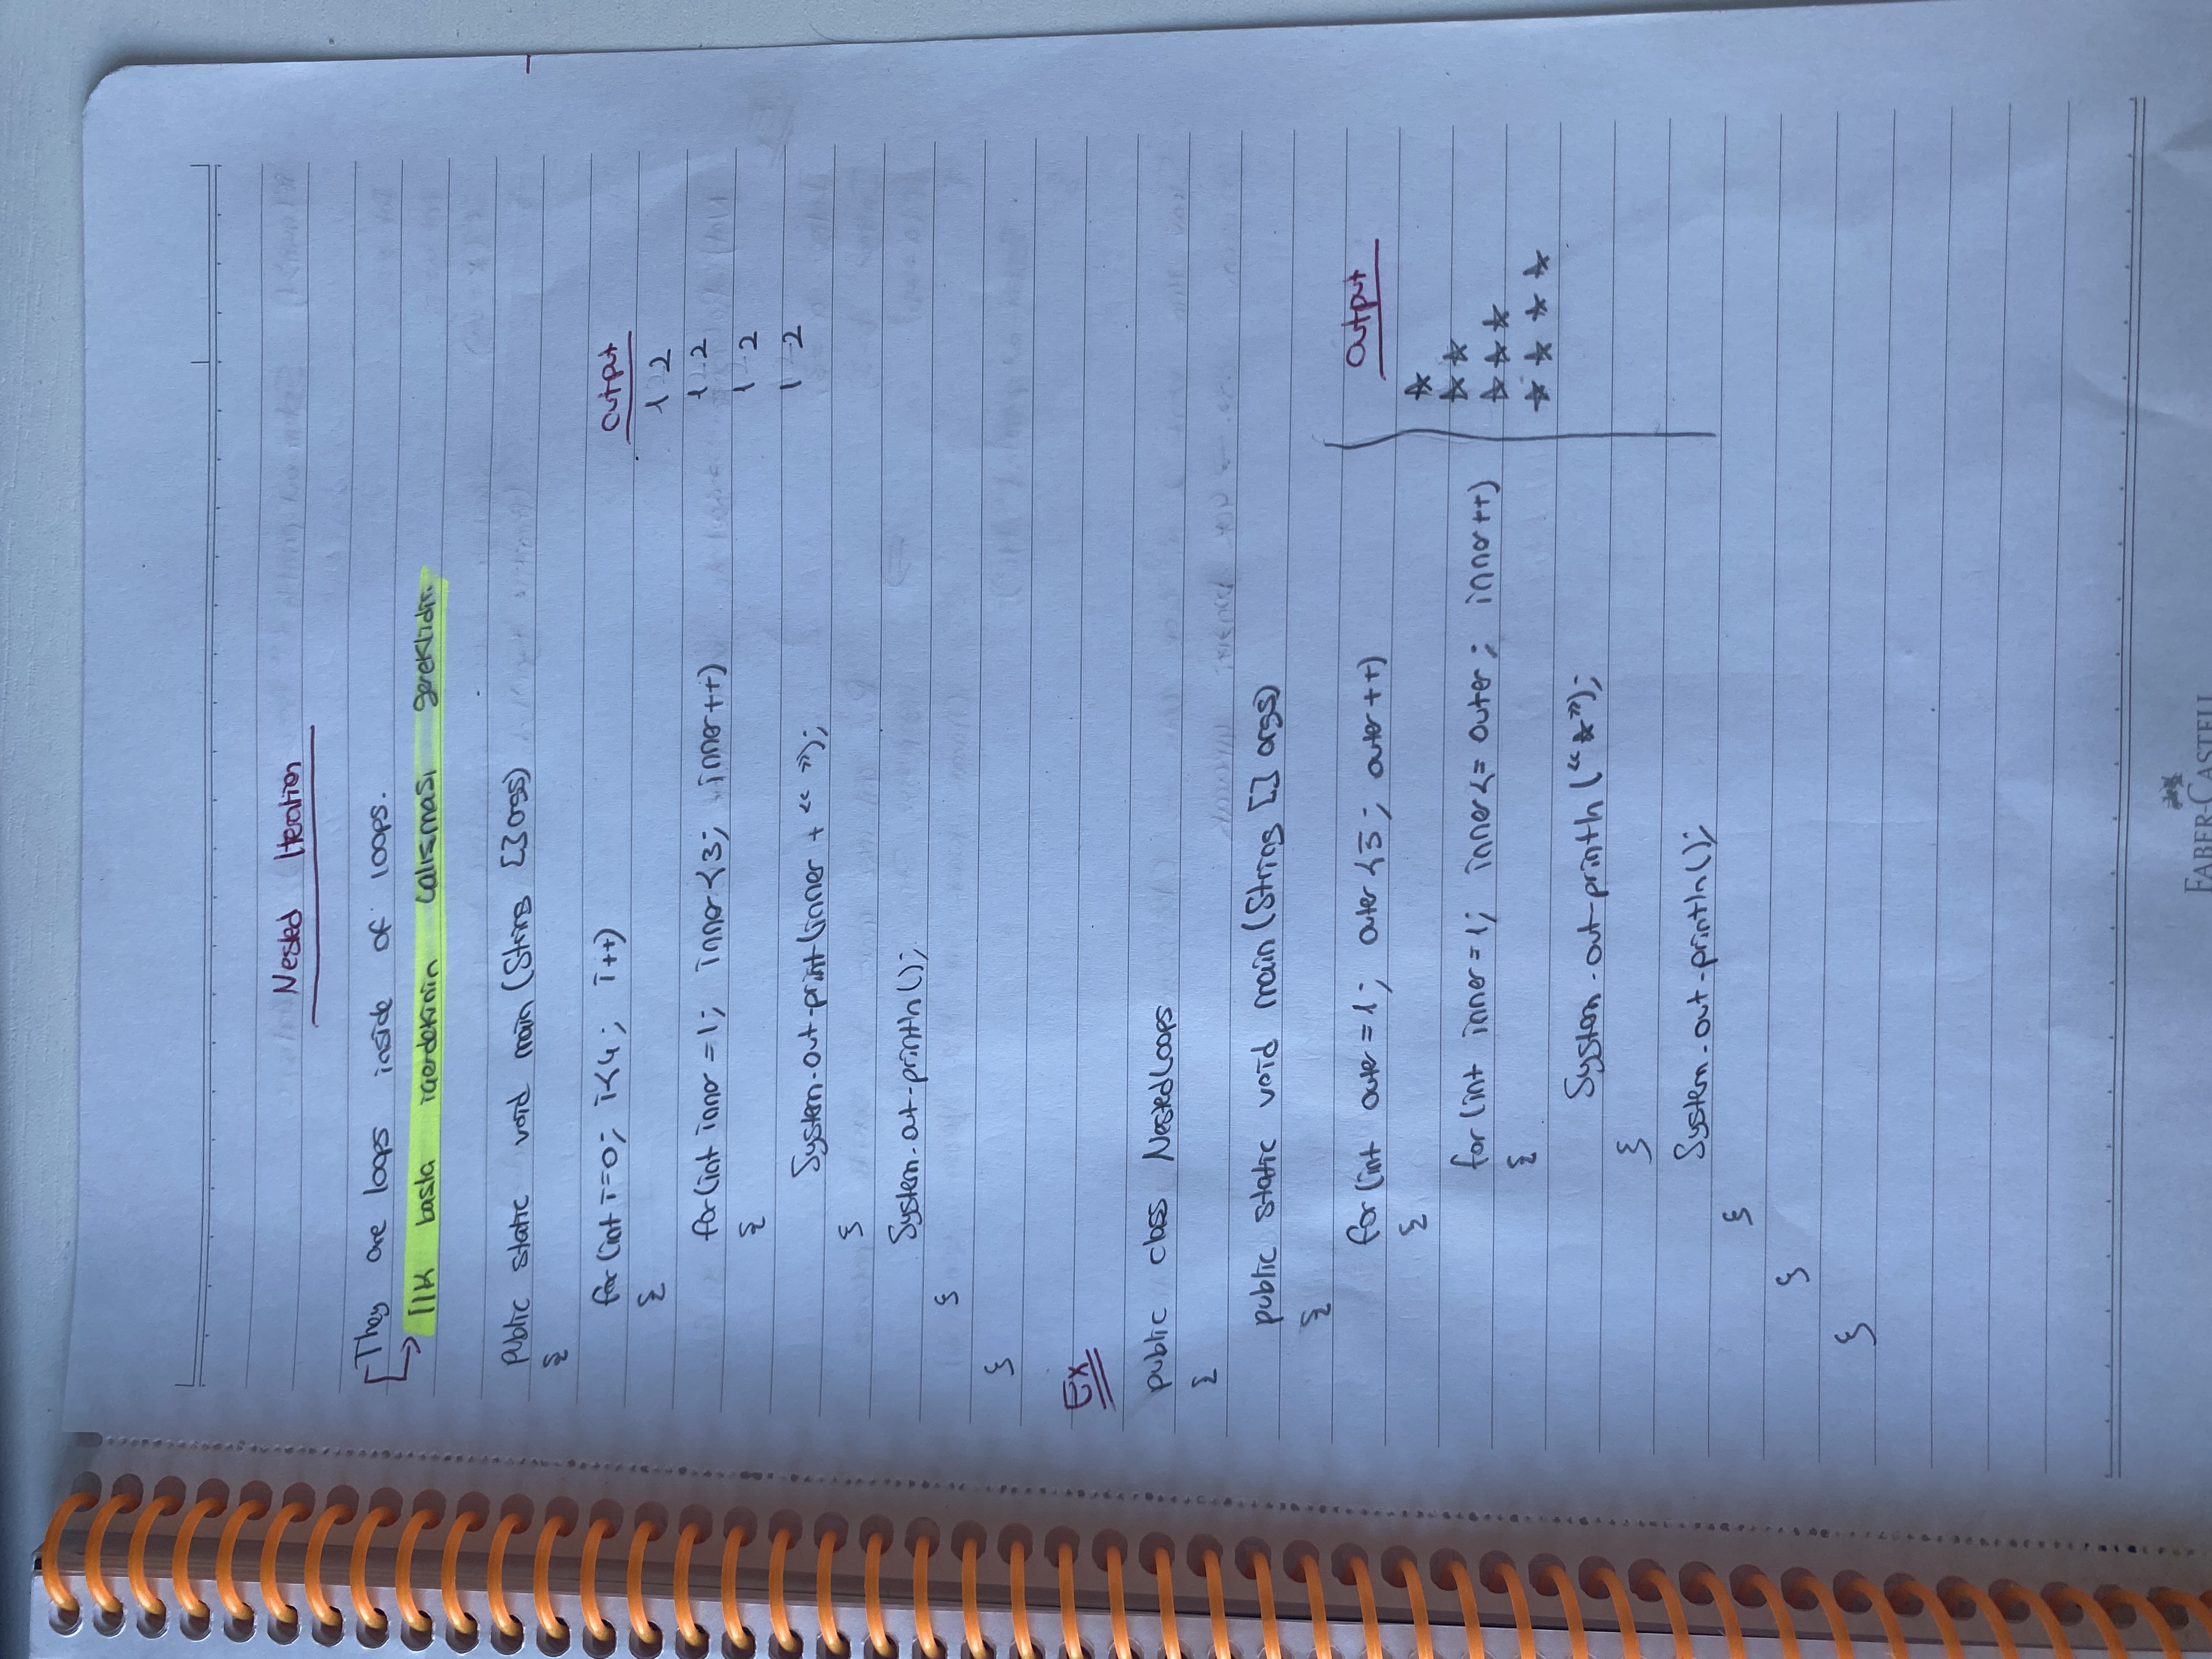 Nested Iteration
They are loops inside of loops.
İlk basta içerdekinin calışması gereklidir.
public static void main (String [] args)
{
for (int i=0; i<4; i++)
Output
{
1 2
for (int inner = 1; inner <3; inner ++)
1 2
{
1 2
System.out.print (inner + " ");
1 2
}
System.out.println ();
}
}
Ex
public class NestedLoops
{
public static void main (String [] args)
{
for (int outer = 1; outer <5; outer ++)
Output
{
★
★ ★
for (int inner = 1; inner <= outer; inner ++)
★ ★ ★
{
★ ★ ★ ★
System.out.println ("★");
}
System.out.println ();
}
}
}
FABER-CASTELL